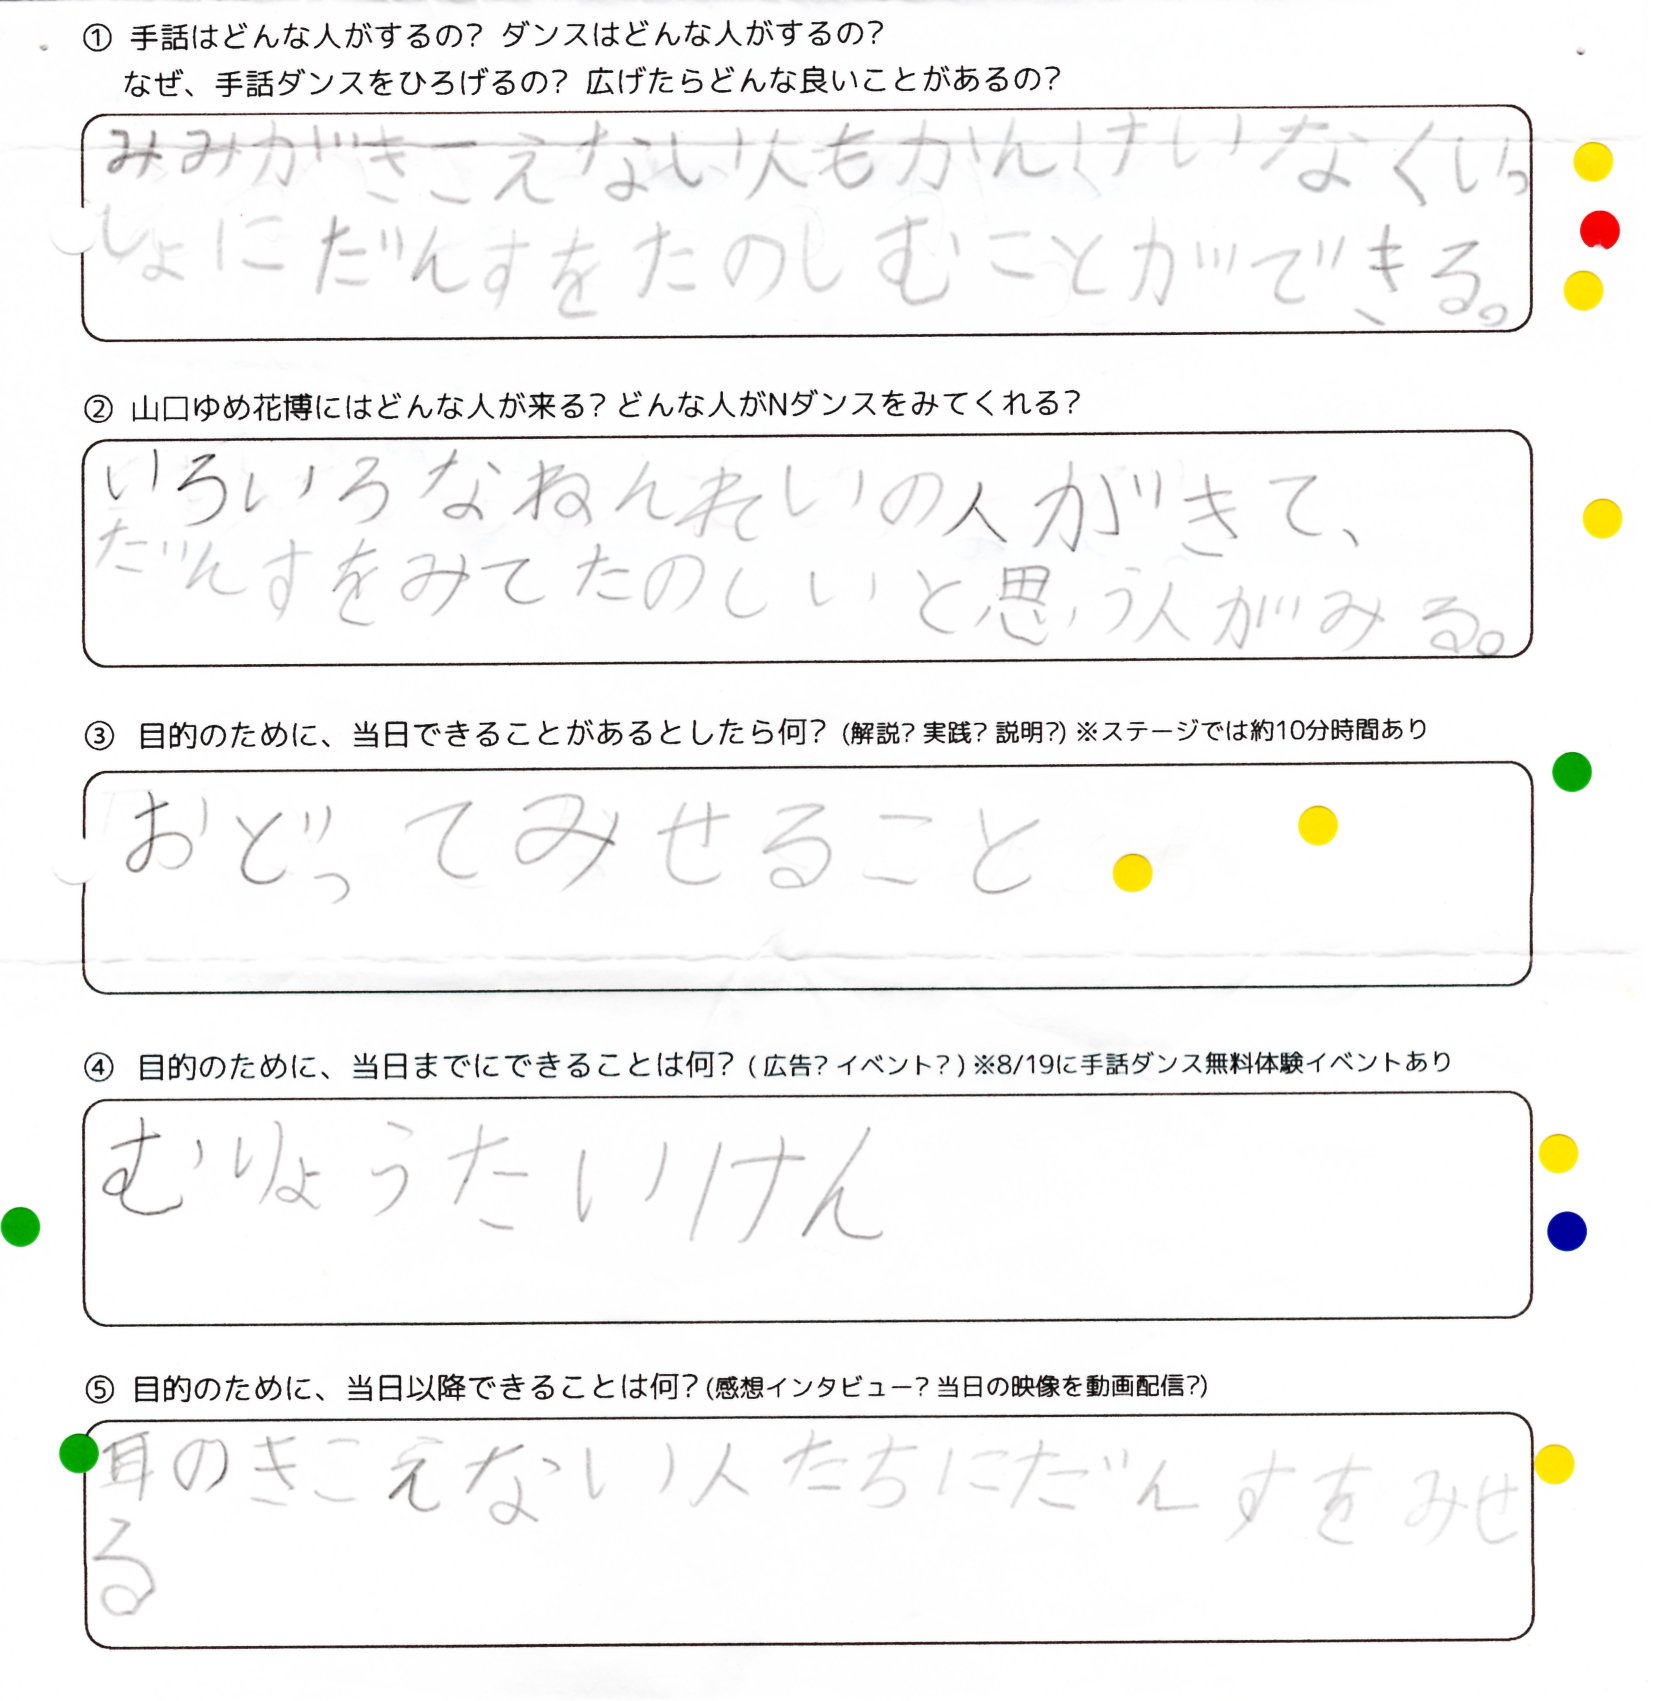 ① 手話はどんな人がするの? ダンスはどんな人がするの?
なぜ、手話ダンスをひろげるの? 広げたらどんな良いことがあるの?
みみがきこえない人もかんけいなくいっ
しょにだんすをたのしむことができる。
② 山口ゆめ花博にはどんな人が来る? どんな人がNダンスをみてくれる?
いろいろなねんれいの人がきて、
だんすをみてたのしいと思う人がみる。
③ 目的のために、当日できることがあるとしたら何? (解説? 実践? 説明?) ※ステージでは約10分時間あり
おどってみせること
④ 目的のために、当日までにできることは何? ( 広告? イベント? ) ※8/19に手話ダンス無料体験イベントあり
むりょうたいけん
⑤ 目的のために、当日以降できることは何? (感想インタビュー? 当日の映像を動画配信?)
耳のきこえない人たちにだんすをみせ
る